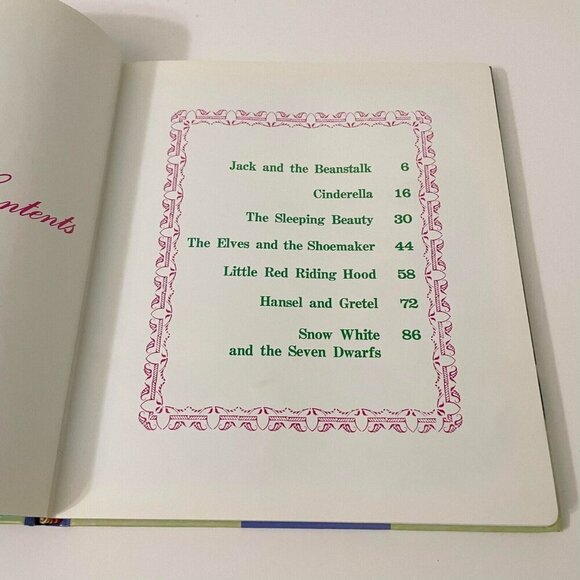 Contents
Jack and the Beanstalk 6
Cinderella 16
The Sleeping Beauty 30
The Elves and the Shoemaker 44
Little Red Riding Hood 58
Hansel and Gretel 72
Snow White 86
and the Seven Dwarfs